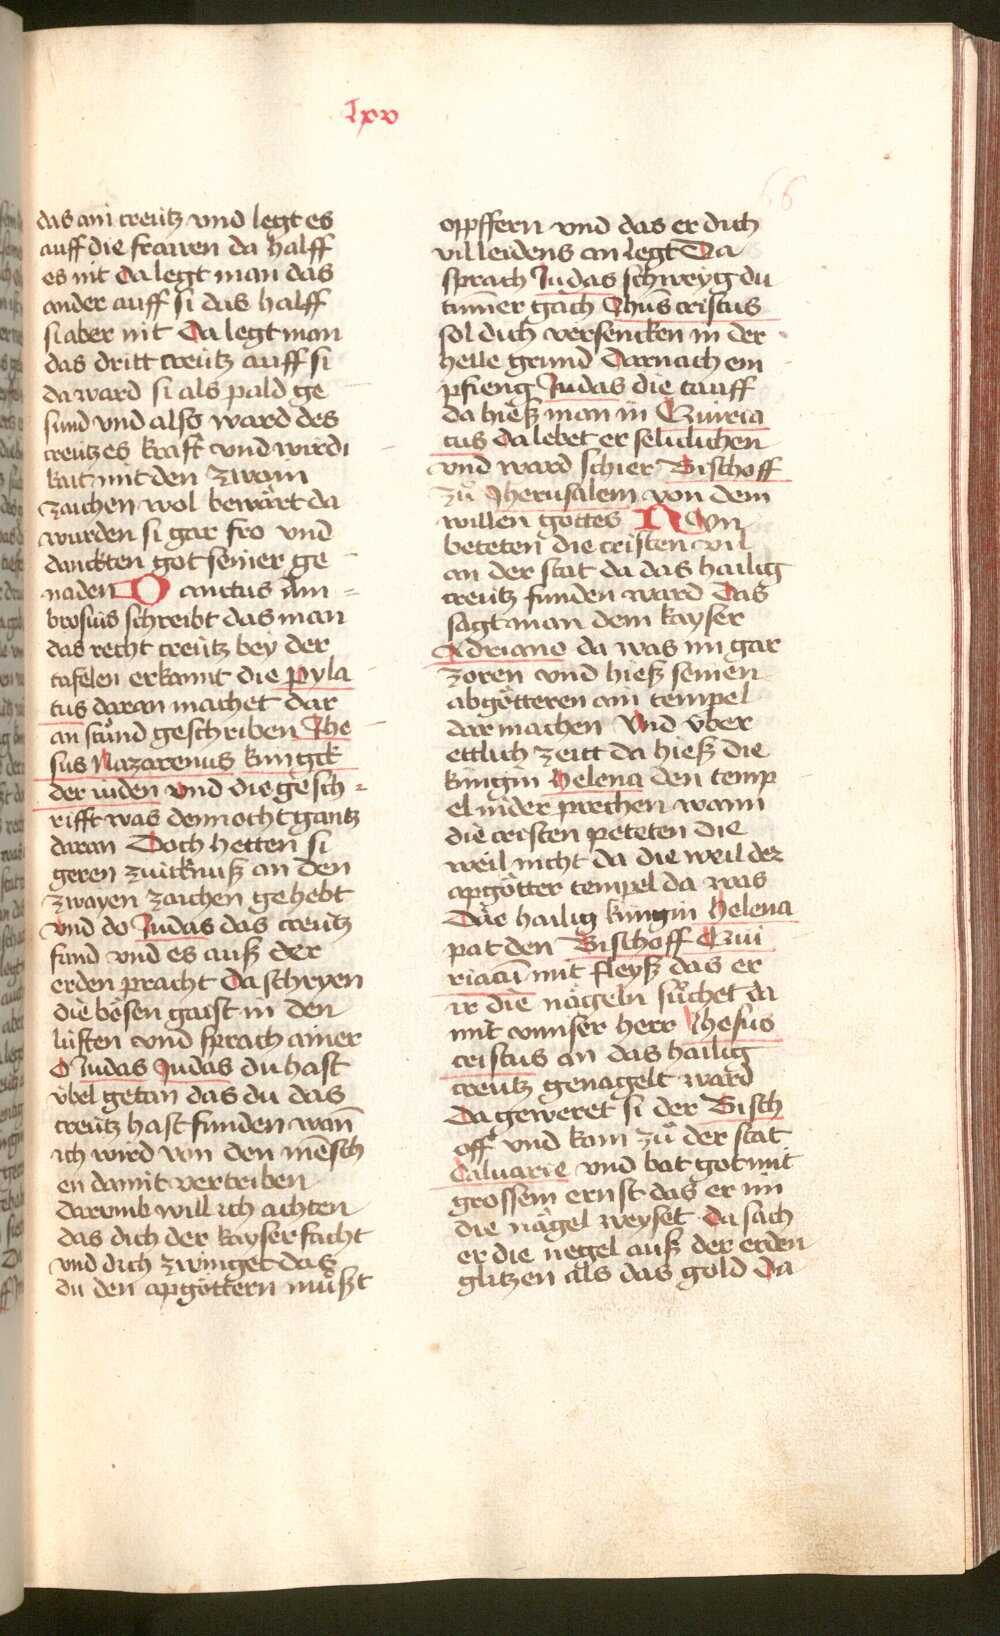 lxv
66
das ain creutz vnd legt es
auff die frawen da halff
es nit Da legt man das
ander auff si das halff
si aber nit Da legt man
das dritt creutz auff si
da ward si als pald ge
sund vnd also ward des
creutzes krafft vnd wirdi
kait mit den zwain
zaichen wol bewärt da
wurden si gar fro vnd
danckten got seiner ge
naden Sanctus Am-
brosius schreibt das man
das recht creutz bey der
tafelen erkannt die Pyla
tus daran machet dar
an stůnd geschriben Jhe
sus Nazarenus kungk
der iuden vnd die gesch-
rifft was dennocht gantz
daran Doch hetten si
geren zuicknuß an den
zwayen zaichen gehebt
vnd do Judas das creutz
fand vnd es auß der
erden pracht Da schryen
die bösen gaist in den
lüften vnd sprach ainer
O Judas Judas du hast
vbel getan das du das
creutz hast funden wañ
ich wird von den mēsch
en damit vertriben
darumb will ich achten
das dich der kayser facht
vnd dich zwinget das
du den apgöttern můst
opffern vnd das er dich
vil leidens an legt Da
sprach Judas schweyg du
tunner gach Jhūs cristus
sol dich versencken in der
helle grund Darnach em
pfieng Judas die tauff
da hieß man in Quiria
cus Da lebet er seliclichen
vnd ward schier Bischoff
zů Jherusalem von dem
willen gottes Nvn
beteten die cristen vil
an der stat da das hailig
creutz funden ward Das
sagt man dem kayser
Adriano da was im gar
zoren vnd hieß seinen
abgötteren ain tempel
dar machen Vnd vber
ettlich zeitt da hieß die
kungin Helena den temp
el nider prechen wann
die cristen peteten die
weil nicht da die weil der
apgötter tempel da was
Die hailig kungin Helena
pat den Bischoff Qui
riacū mit fleyß das er
ir die nägeln sůchet da
mit vnnser herr Jhesus
cristus an das hailig
creutz genagelt ward
Da geweret si der Bisch
off vnd kam zů der stat
Caluarie vnd bat got mit
grossem ernst das er im
die nägel weyset Da sach
er die negel auß der erden
glitzen als das gold Da